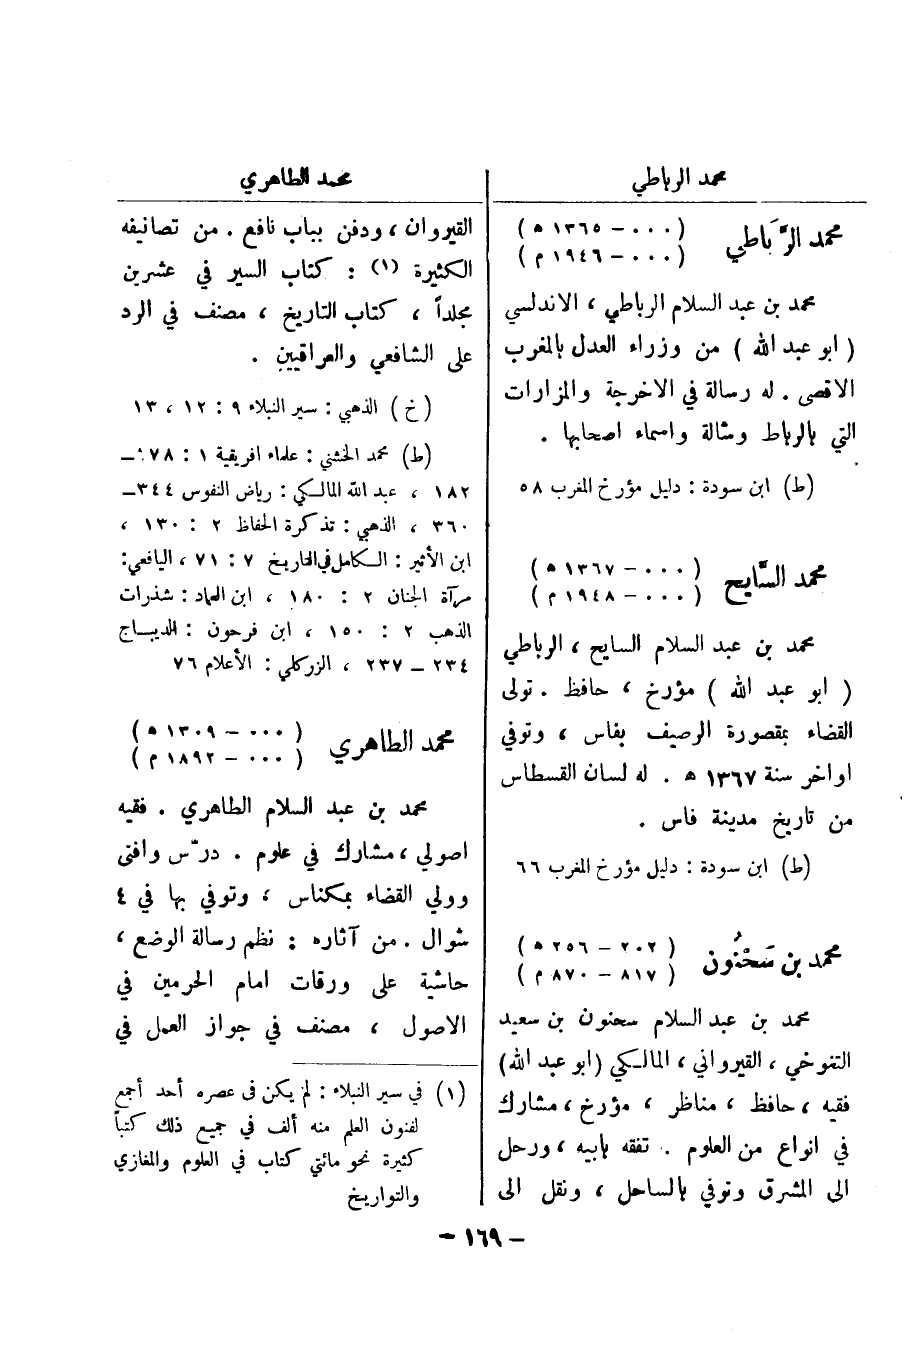 محمد الرباطي
محمد الرَّباطي
( ٠٠٠ – ١٣٦٥ ه )
( ٠٠٠ – ١٩٤٦ م )
محمد بن عبد السلام الرباطي ، الاندلسي
( ابو عبد الله ) من وزراء العدل بالمغرب
الاقصى . له رسالة في الاخرجة والمزارات
التي بالرباط وشالة واسماء اصحابها .
(ط) ابن سودة : دليل مؤرخ المغرب ٥٨
محمد السَّايح
( ٠٠٠ – ١٣٦٧ ه )
( ٠٠٠ – ١٩٤٨ م )
محمد بن عبد السلام السايح ، الرباطي
( ابو عبد الله ) مؤرخ ، حافظ . تولى
القضاء بمقصورة الرصيف بفاس ، وتوفي
اواخر سنة ١٣٦٧ ه . له لسان القسطاس
من تاريخ مدينة فاس .
(ط) ابن سودة : دليل مؤرخ المغرب ٦٦
محمد بن سَحْنُون
( ٢٠٢ – ٢٥٦ ه )
( ٨١٧ – ٨٧٠ م )
محمد بن عبد السلام سحنون بن سعيد
التنوخي ، القيرواني ، المالكي (ابو عبد الله)
فقيه ، حافظ ، مناظر ، مؤرخ ، مشارك
في انواع من العلوم . تفقه بابيه ، ورحل
الى المشرق وتوفي بالساحل ، ونقل الى
محمد الطاهري
القيروان ، ودفن بباب نافع . من تصانيفه
الكثيرة (١) : كتاب السير في عشرين
مجلداً ، كتاب التاريخ ، مصنف في الرد
على الشافعي والعراقيين .
(خ) الذهبي : سير النبلاء ٩ : ١٢ ، ١٣
(ط) محمد الخشني : علماء افريقية ١ : ١٧٨ –
١٨٢ ، عبد الله المالكي : رياض النفوس ٣٤٤–
٣٦٠ ، الذهبي : تذكرة الحفاظ ٢ : ١٣٠ ،
ابن الأثير : الكامل في التاريخ ٧ : ٧١ ، اليافعي:
مرآة الجنان ٢ : ١٨٠ ، ابن العماد : شذرات
الذهب ٢ : ١٥٠ ، ابن فرحون : الديباج
٢٣٤ – ٢٣٧ ، الزركلي : الأعلام ٧٦
محمد الطاهري
( ٠٠٠ – ١٣٠٩ ه )
( ٠٠٠ – ١٨٩٢ م )
محمد بن عبد السلام الطاهري . فقيه
اصولي ، مشارك في علوم . درّس وافتى
وولي القضاء بمكناس ، وتوفي بها في ٤
شوال . من آثاره : نظم رسالة الوضع ،
حاشية على ورقات امام الحرمين في
الاصول ، مصنف في جواز العمل في
(١) في سير النبلاء : لم يكن فى عصره أحد أجمع
لفنون العلم منه ألف في جميع ذلك كتباً
كثيرة نحو مائتي كتاب في العلوم والمغازي
والتواريخ
– ١٦٩ –